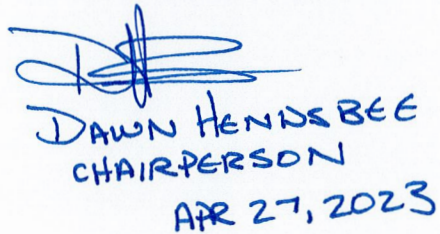 DAWN HENNSBEE
CHAIRPERSON
APR 27, 2023